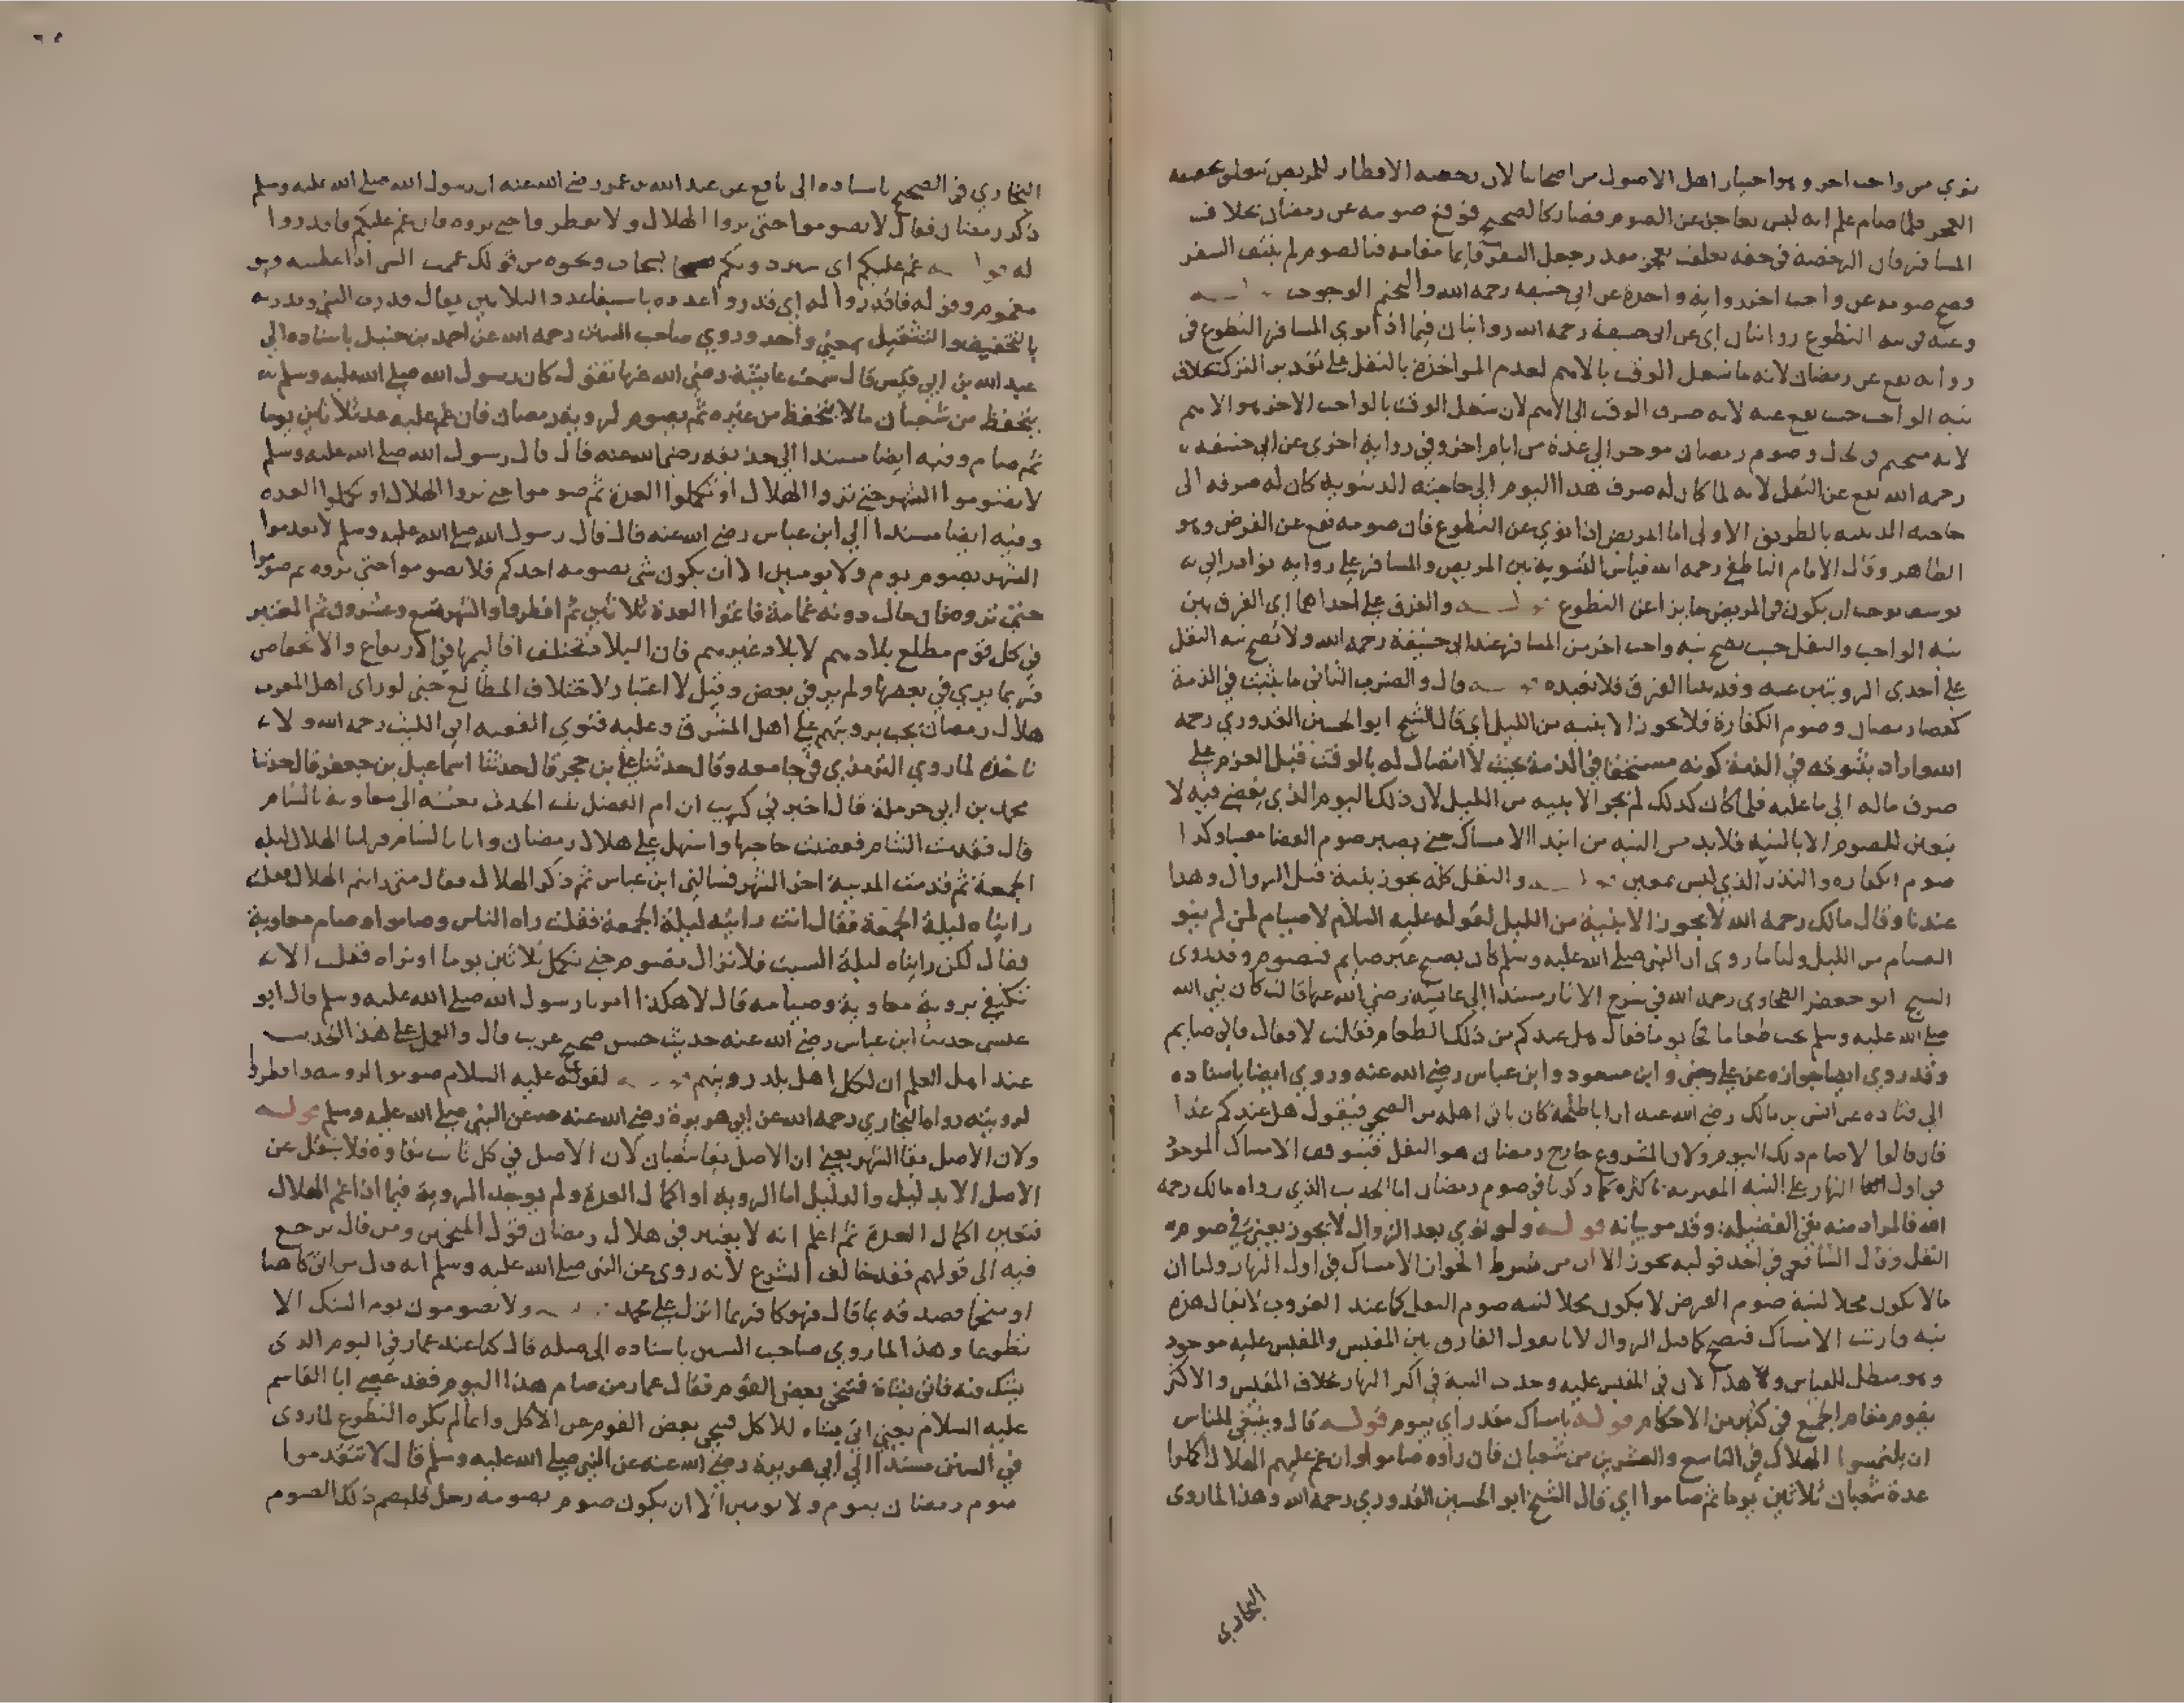 نوي من واجب اخر وهو اختيار اهل الاصول من اصحابنا لان رخصة الافطار للمريض تتعلق بحقيقة
العجز فلما صام علم انه ليس بعاجز عن الصوم فصار كالصحيح فوقع صومه عن رمضان بخلاف
المسافر فان الرخصة في حقه تعلقت بعجز مقدر وجعل السفر قايما مقامه فبالصوم لم ينتف السفر
فصح صومه عن واجب اخر رواية واحدة عن ابي حنيفة رحمه الله
وعنه في نية التطوع روايتان اي عن ابي حنيفة رحمه الله روايتان فيما اذا نوي المسافر التطوع في
رواية يقع عن رمضان لانه ما شغل الوقت بالاهم لعدم المواخذة بالنفل على تقدير الترك بخلاف
نية الواجب حيث يقع عنه لانه صرف الوقت الى الاهم لان شغل الوقت بالواجب الاخر هو الاهم
لانه متحتم في الحال وصوم رمضان موخر الى عدة من ايام اخر وفي رواية اخري عن ابي حنيفة
رحمه الله يقع عن النفل لانه لما كان له صرف هذا اليوم الى حاجته الدنيوية كان له صرفه الى
حاجته الدينية بالطريق الاولى اما المريض اذا نوي عن التطوع فان صومه يقع عن الفرض وهو
الظاهر وقال الامام الناطفي رحمه الله قياس التسوية بين المريض والمسافر على رواية نوادر ابي
يوسف يوجب ان يكون في المريض جايزا عن التطوع قوله والفرق على احداهما اي الفرق بين
نية الواجب والنفل حيث يصح نية واجب اخر من المسافر عند ابي حنيفة رحمه الله ولا تصح نية النفل
على احدى الروايتين عنه وقد بينا الفرق فلا نعيده قوله قال والضرب الثاني ما يثبت في الذمة
كقضا رمضان وصوم الكفارة فلا يجوز الا بنية من الليل اي قال الشيخ ابو الحسين القدوري رحمه
الله واراد بثبوته في الذمة كونه مستحقا في الذمة بحيث لا اتصال له بالوقت قبل العزم على
صرف ماله الى ما عليه فلما كان كذلك لم يجز الا بنية من الليل لان ذلك اليوم الذي يقضي فيه لا
يتعين للصوم الا بالنية فلا بد من النية من ابتدا الامساك حتى يصير صوم القضا وكذا
صوم الكفارة والنذر الذي ليس بمعين قوله والنفل كله يجوز بنية قبل الزوال وهذا
عندنا وقال مالك رحمه الله لا يجوز الا بنية من الليل لقوله عليه السلام لا صيام لمن لم ينو
الصيام من الليل ولنا ما روي ان النبي صلى الله عليه وسلم كان يصبح غير صايم فيصوم وقد روى
الشيخ ابو جعفر الطحاوي رحمه الله في شرح الاثار مسندا الى عايشة رضي الله عنها قالت كان نبي الله
صلى الله عليه وسلم يحب طعاما فجا يوما فقال هل عندكم من ذلك الطعام فقلت لا فقال فاني صايم
وقد روي ايضا جوازه عن علي وابن مسعود وابن عباس رضي الله عنه وروي ايضا باسناده
الى قتادة عن انس بن مالك رضي الله عنه ان ابا طلحة كان ياتي اهله من الضحى فيقول هل عندكم غدا
فان قالوا لا صام ذلك اليوم ولان المشروع خارج رمضان هو النفل فيتوقف الامساك الموجود
في اول النهار على النية باكثره كما ذكرنا في صوم رمضان اما الحديث الذي رواه مالك رحمه
الله فالمراد منه نفي الفضيلة وقد مر بيانه قوله ولو نوي بعد الزوال لا يجوز يعني في صوم
النفل وقال الشافعي في احد قوليه يجوز الا ان من شرط الجواز الامساك في اول النهار ولنا ان
مالا يكون محلا لنية صوم الفرض لا يكون محلا لنية صوم النفل كما عند الغروب لا يقال هذه
نية قارنت الامساك فتصح كما قبل الزوال لانا نقول الفارق بين المقيس والمقيس عليه موجود
وهو مبطل للقياس وهذا لان في المقيس عليه وجدت النية في اكثر النهار بخلاف المقيس والاكثر
يقوم مقام الجميع في كثير من الاحكام قوله بامساك مقدر اي بيوم قوله قال وينبغي للناس
ان يلتمسوا الهلال في التاسع والعشرين من شعبان فان راوه صاموا وان غم عليهم الهلال اكملوا
عدة شعبان ثلاثين يوما ثم صاموا اي قال الشيخ ابو الحسين القدوري رحمه الله وهذا لما روى
البخاري
البخاري في الصحيح باسناده الى نافع عن عبد الله بن عمر رضي الله عنه ان رسول الله صلى الله عليه وسلم
ذكر رمضان فقال لا تصوموا حتى تروا الهلال ولا تفطروا حتى تروه فان غم عليكم فاقدروا
له قوله غم عليكم اي ونحوه من قولك غممت الشي اذا غطيته وهو
مغموم وقوله فاقدروا له اي قدروا عدده باستيفا عدد الثلاثين يقال قدرت الشي وقدرته
بالتخفيف والتثقيل بمعنى واحد وروي صاحب السنن رحمه الله عن احمد بن حنبل باسناده الى
عبد الله بن ابي قيس قال سمعت عايشة رضي الله عنها تقول كان رسول الله صلى الله عليه وسلم
يتحفظ من شعبان مالا يتحفظ من غيره ثم يصوم لروية رمضان فان غم عليه عد ثلاثين يوما
ثم صام وفيه ايضا مسندا الى حذيفة رضي الله عنه قال قال رسول الله صلى الله عليه وسلم
لا تقدموا الشهر حتى تروا الهلال او تكملوا العدة ثم صوموا حتى تروا الهلال او تكملوا العدة
وفيه ايضا مسندا الى ابن عباس رضي الله عنه قال قال رسول الله صلى الله عليه وسلم لا تقدموا
الشهر بصوم يوم ولا يومين الا ان يكون شي يصومه احدكم فلا تصوموا حتى تروه ثم صوموا
حتى تروه فان حال دونه غمامة فاتموا العدة ثلاثين ثم افطروا والشهر تسع وعشرون ثم المعتبر
في كل قوم مطلع بلادهم لا بلاد غيرهم فان البلاد تختلف اقاليمها في الارتفاع والانخفاض
فربما يري في بعضها ولم ير في بعض وقيل لا اعتبار لاختلاف المطالع حتى لو راى اهل المغرب
هلال رمضان يجب برويتهم على اهل المشرق وعليه فتوي الفقيه ابي الليث رحمه الله ولا
ناخذه لما روي الترمذي في جامعه وقال حدثنا علي بن حجر قال حدثنا اسماعيل بن جعفر قال حدثنا
محمد بن ابي حرملة قال اخبرني كريب ان ام الفضل بنت الحرث بعثته الى معاوية بالشام
قال فقدمت الشام فقضيت حاجتها واستهل على هلال رمضان وانا بالشام فراينا الهلال ليلة
الجمعة ثم قدمت المدينة اخر الشهر فسالني ابن عباس ثم ذكر الهلال فقال متى رايتم الهلال فقلت
رايناه ليلة الجمعة فقال انت رايته ليلة الجمعة فقلت راه الناس وصاموا وصام معاوية
فقال لكن رايناه ليلة السبت فلا نزال نصوم حتى نكمل ثلاثين يوما او نراه فقلت الا
تكتفي بروية معاوية وصيامه قال لا هكذا امرنا رسول الله صلى الله عليه وسلم قال ابو
عيسى حديث ابن عباس رضي الله عنه حديث حسن صحيح غريب قال والعمل على هذا الحديث
عند اهل العلم ان لكل اهل بلد رويتهم قوله لقوله عليه السلام صوموا لرويته وافطروا
لرويته رواه البخاري رحمه الله عن ابي هريرة رضي الله عنه عن النبي صلى الله عليه وسلم قوله
ولان الاصل بقا الشهر يعني ان الاصل بقا شعبان لان الاصل في كل ثابت بقاوه فلا ينقل عن
الاصل الا بدليل والدليل اما الروية او اكمال العدة ولم يوجد الروية فيما اذا غم الهلال
فتعين اكمال العدة ثم اعلم انه لا يعتبر في هلال رمضان قول المنجمين ومن قال يرجع
فيه الى قولهم فقد خالف الشرع لانه روى عن النبي صلى الله عليه وسلم انه قال من اتى كاهنا
او منجما فصدقه بما قال فهو كافر بما انزل على محمد قوله ولا تصومون يوم الشك الا
تطوعا وهذا لما روي صاحب السنن باسناده الى صلة قال كنا عند عمار في اليوم الذي
يشك فيه فاتي بشاة فتنحى بعض القوم فقال عمار من صام هذا اليوم فقد عصى ابا القاسم
عليه السلام يعني اتي بشاة للاكل فتنحى بعض القوم عن الاكل وانما لم يكره التطوع لما روى
في السنن مسندا الى ابي هريرة رضي الله عنه عن النبي صلى الله عليه وسلم قال لا تتقدموا
صوم رمضان بيوم ولا يومين الا ان يكون صوم يصومه رجل فليصم ذلك الصوم